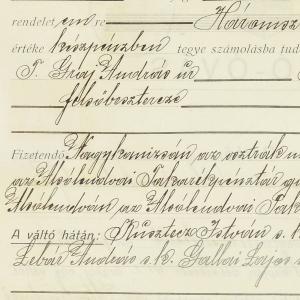 rendelet em re Három
értéke készpénzben tegye számolásba tud
T. Gráf András úr
felsőbesztercze
Fizetendő Nagykanizsán az osztrák m
az Alsólendvai Takarékpénztár
Alsólendván az Alsólendvai Tak
A váltó hátán: Kusztecz István s. k.
Lebár András s. k. Gallai Lajos s